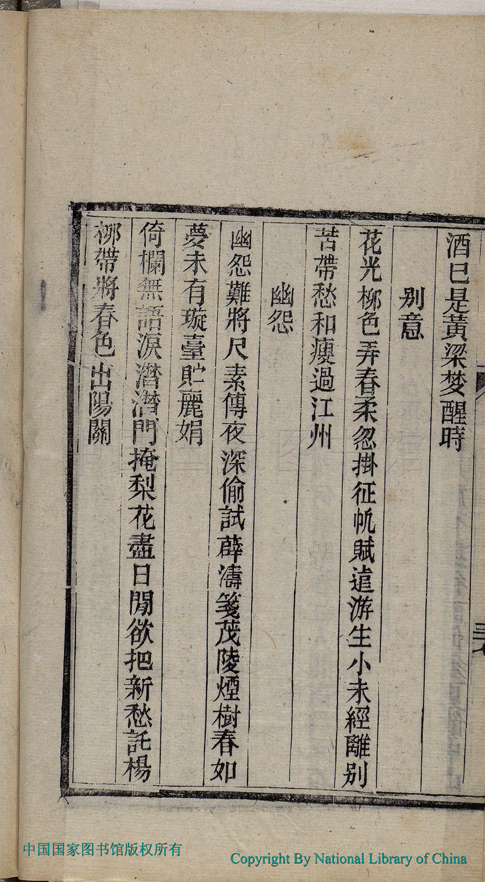 酒已是黃梁梦醒時
别意
花光桺色弄春柔忽掛征帆賦遠游生小未經離别
苦帶愁和瘦過江州
幽怨
幽怨難將尺素傳夜深偷試薜濤箋茂陵煙樹春如
夢未有璇臺貯麗娟
倚欄無語淚潸潸門掩梨花盡日閒欲把新愁託楊
桺帶將春色出陽關
中国国家图书馆版权所有
Copyright By National Library of China